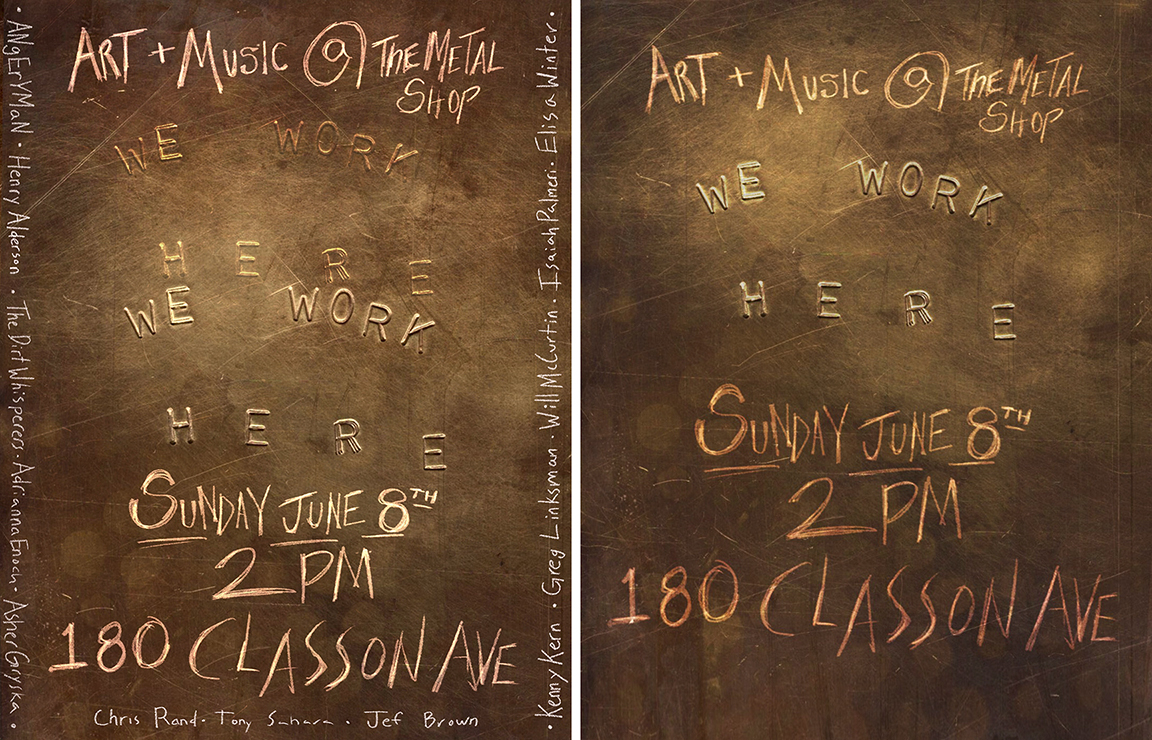 ART + MUSIC @ THE METAL
SHOP
WE WORK
HERE
WE WORK
HERE
SUNDAY JUNE 8TH
2 PM
180 CLASSON AVE
• ANgErYMaN • Henry Alderson • The Dirt Whisperers • Adrianna Enoch • Asher Gryska •
Chris Rand • Tony • Jef Brown
• Kenny Kern • Greg Linksman • Will McCurtin • Isaiah Palmeri • Elisa Winter •
ART + MUSIC @ THE METAL
SHOP
WE WORK
HERE
SUNDAY JUNE 8TH
2 PM
180 CLASSON AVE